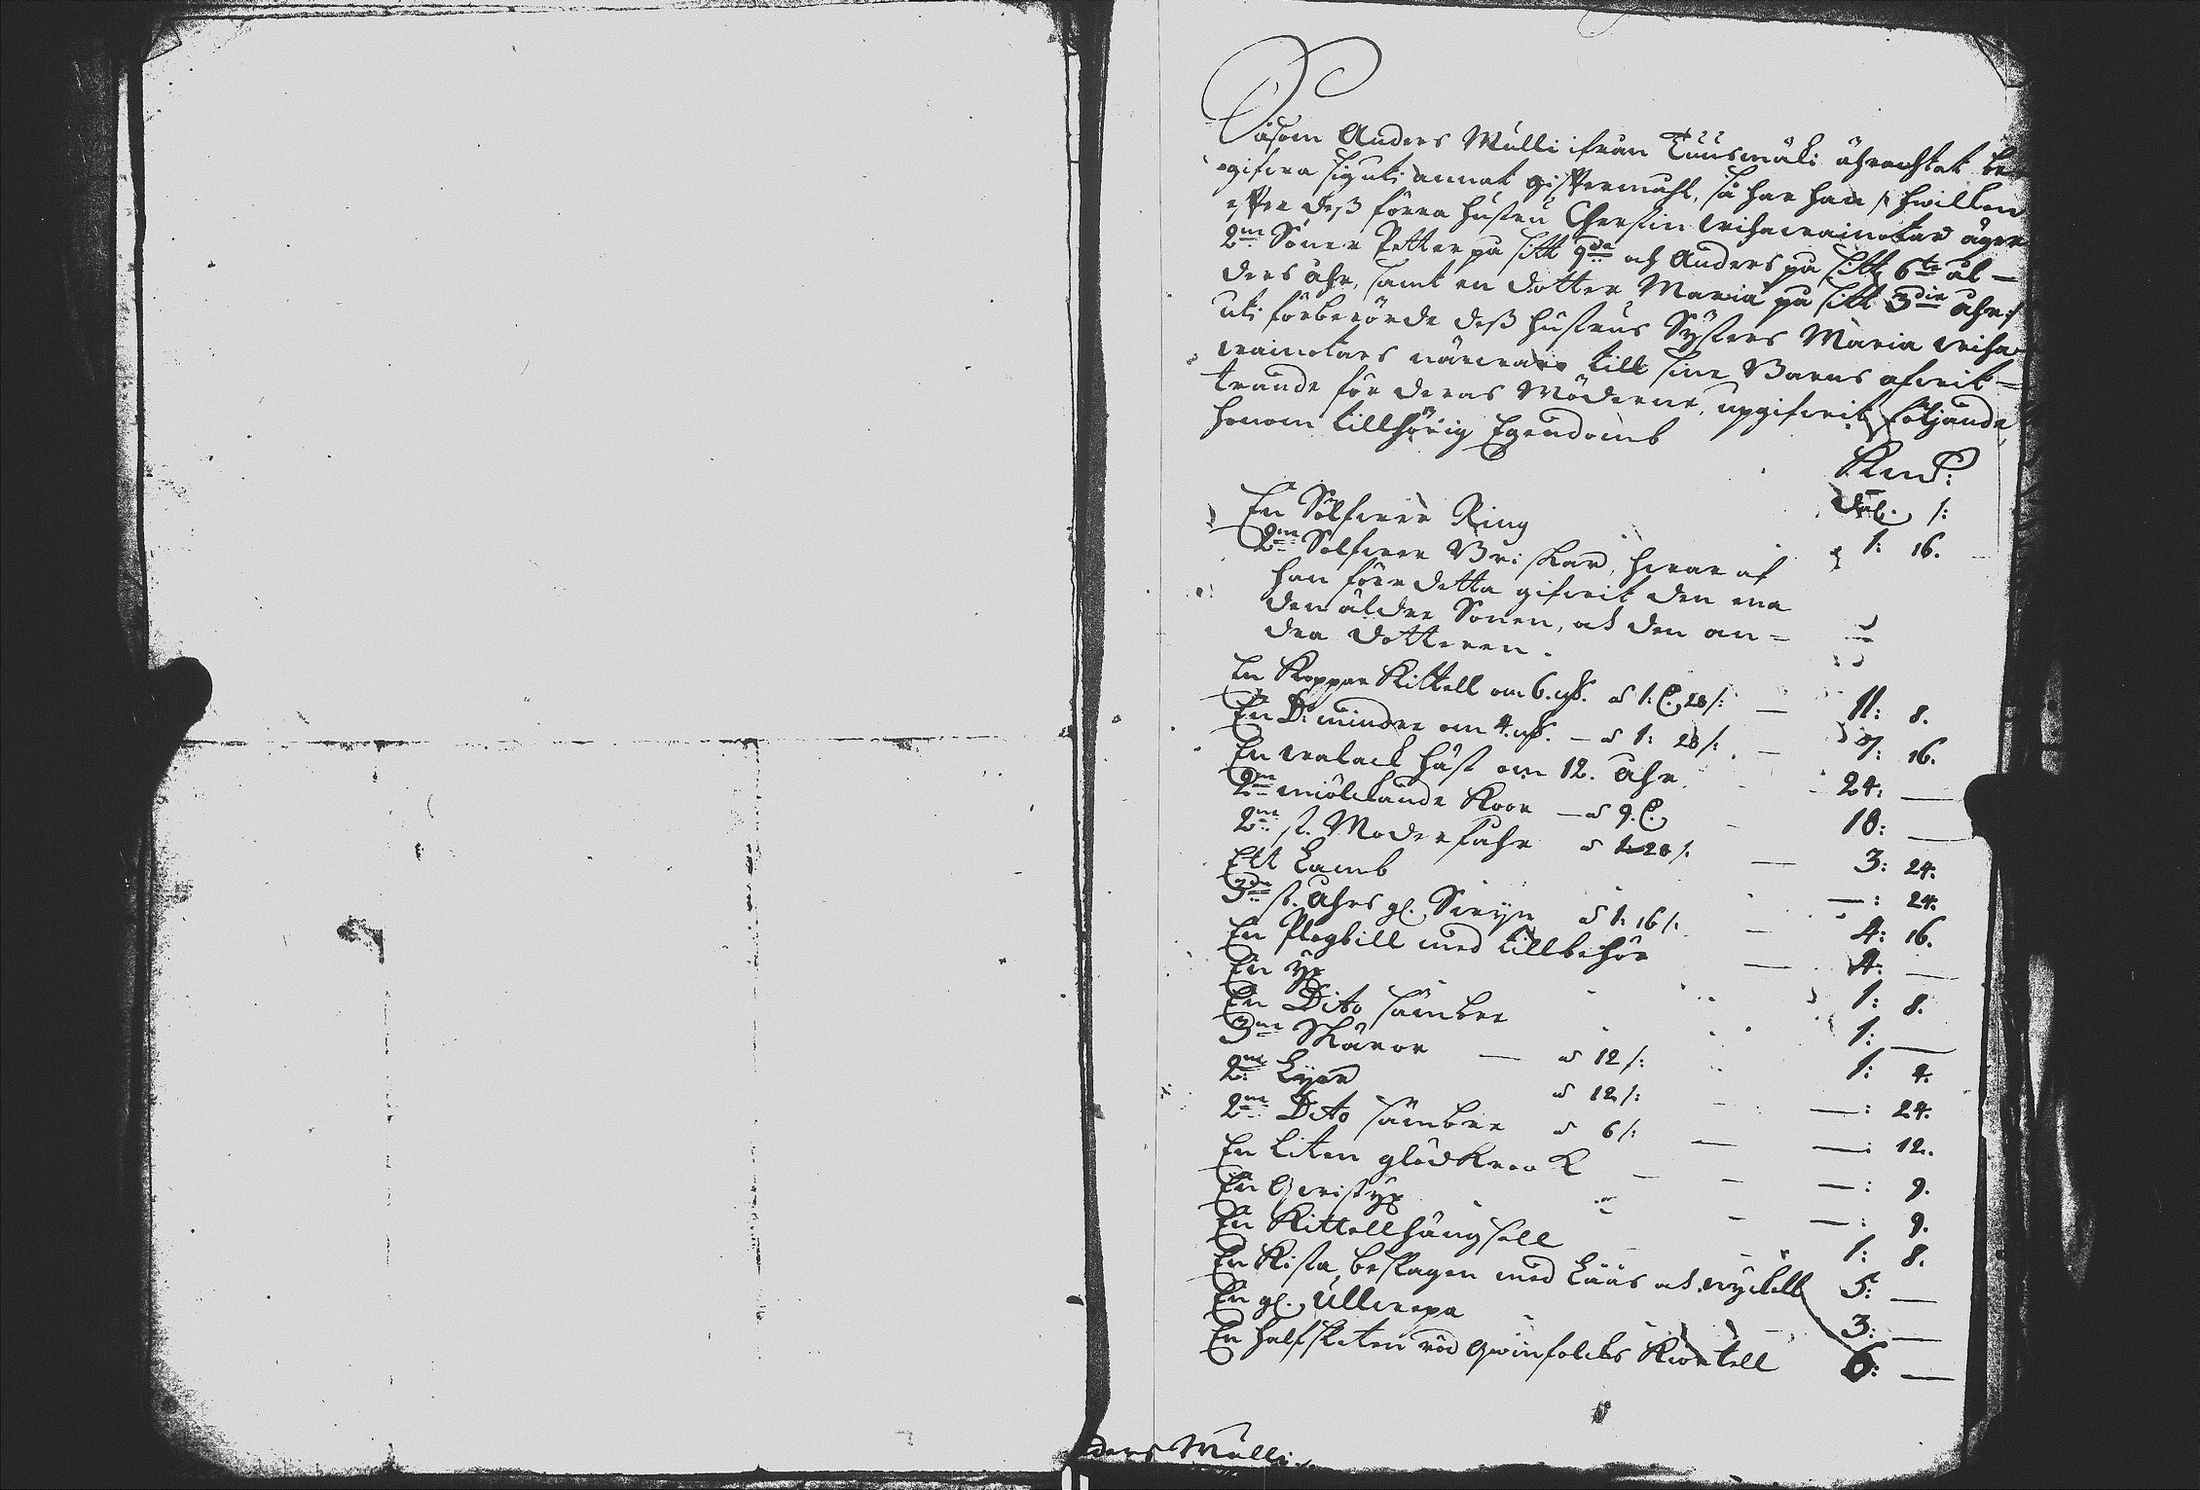 Såsom Anders Mulli ifrån Tuusmäki åhrachtat be-
gifwa sig uti annat gifftermåhl, så har han /: hwilken
effter dess förra hustru Cherstin äger
2ne Söner Petter på sitt 9de och Anders på sitt 6te ål-
ders åhr, samt en dotter Maria på sitt 3die åhr :/
uti förberörde dess hustrus Systers Maria
närwaro till sine Barns afwit-
trande för deras Möderne, upgifwitföljande
honom tillhörig Egendomb
Kmt:
Dal. /:
En Sölfwer Ring 1: 16.
2ne Sölfwer Briskar, hwaraf
han förr detta gifwit den ena
den äldre Sonen, och den an=
dra dotteren.
En Koppar Kittell om 6. ℔. à 1: 28/: — 11: 8.
En D: mindre om 4. ℔. — à 1: 28/: — 7: 16.
En walack häst om 12. åhr. 24: —
2ne miölckande Koor — à 9. 18: —
2ne st. Moderfåhr à 1: 28/: — 3: 24.
Ett Lamb —: 24.
3ne st. åhrs gl. Swijn à 1: 16/: — 4: 16.
En Plogbill med tillbehör — 4: —
En yx 1: 8.
En Dito sämbre 1: —
3ne Skäror — à 12/: 1: 4.
2ne Lyor à 12/: —: 24.
2ne Dito sämbre à 6/: — —: 12.
En liten glödkrok — —: 9.
En Qwistyx —: 9.
En Kittellhängsell 1: 8.
En Kista, beslagen med Låås och nyckell 5: —
En gl. Ullwepa 3: —
En halfsliten röd qwinfolcks Kiortell 6: —
ders Mulli